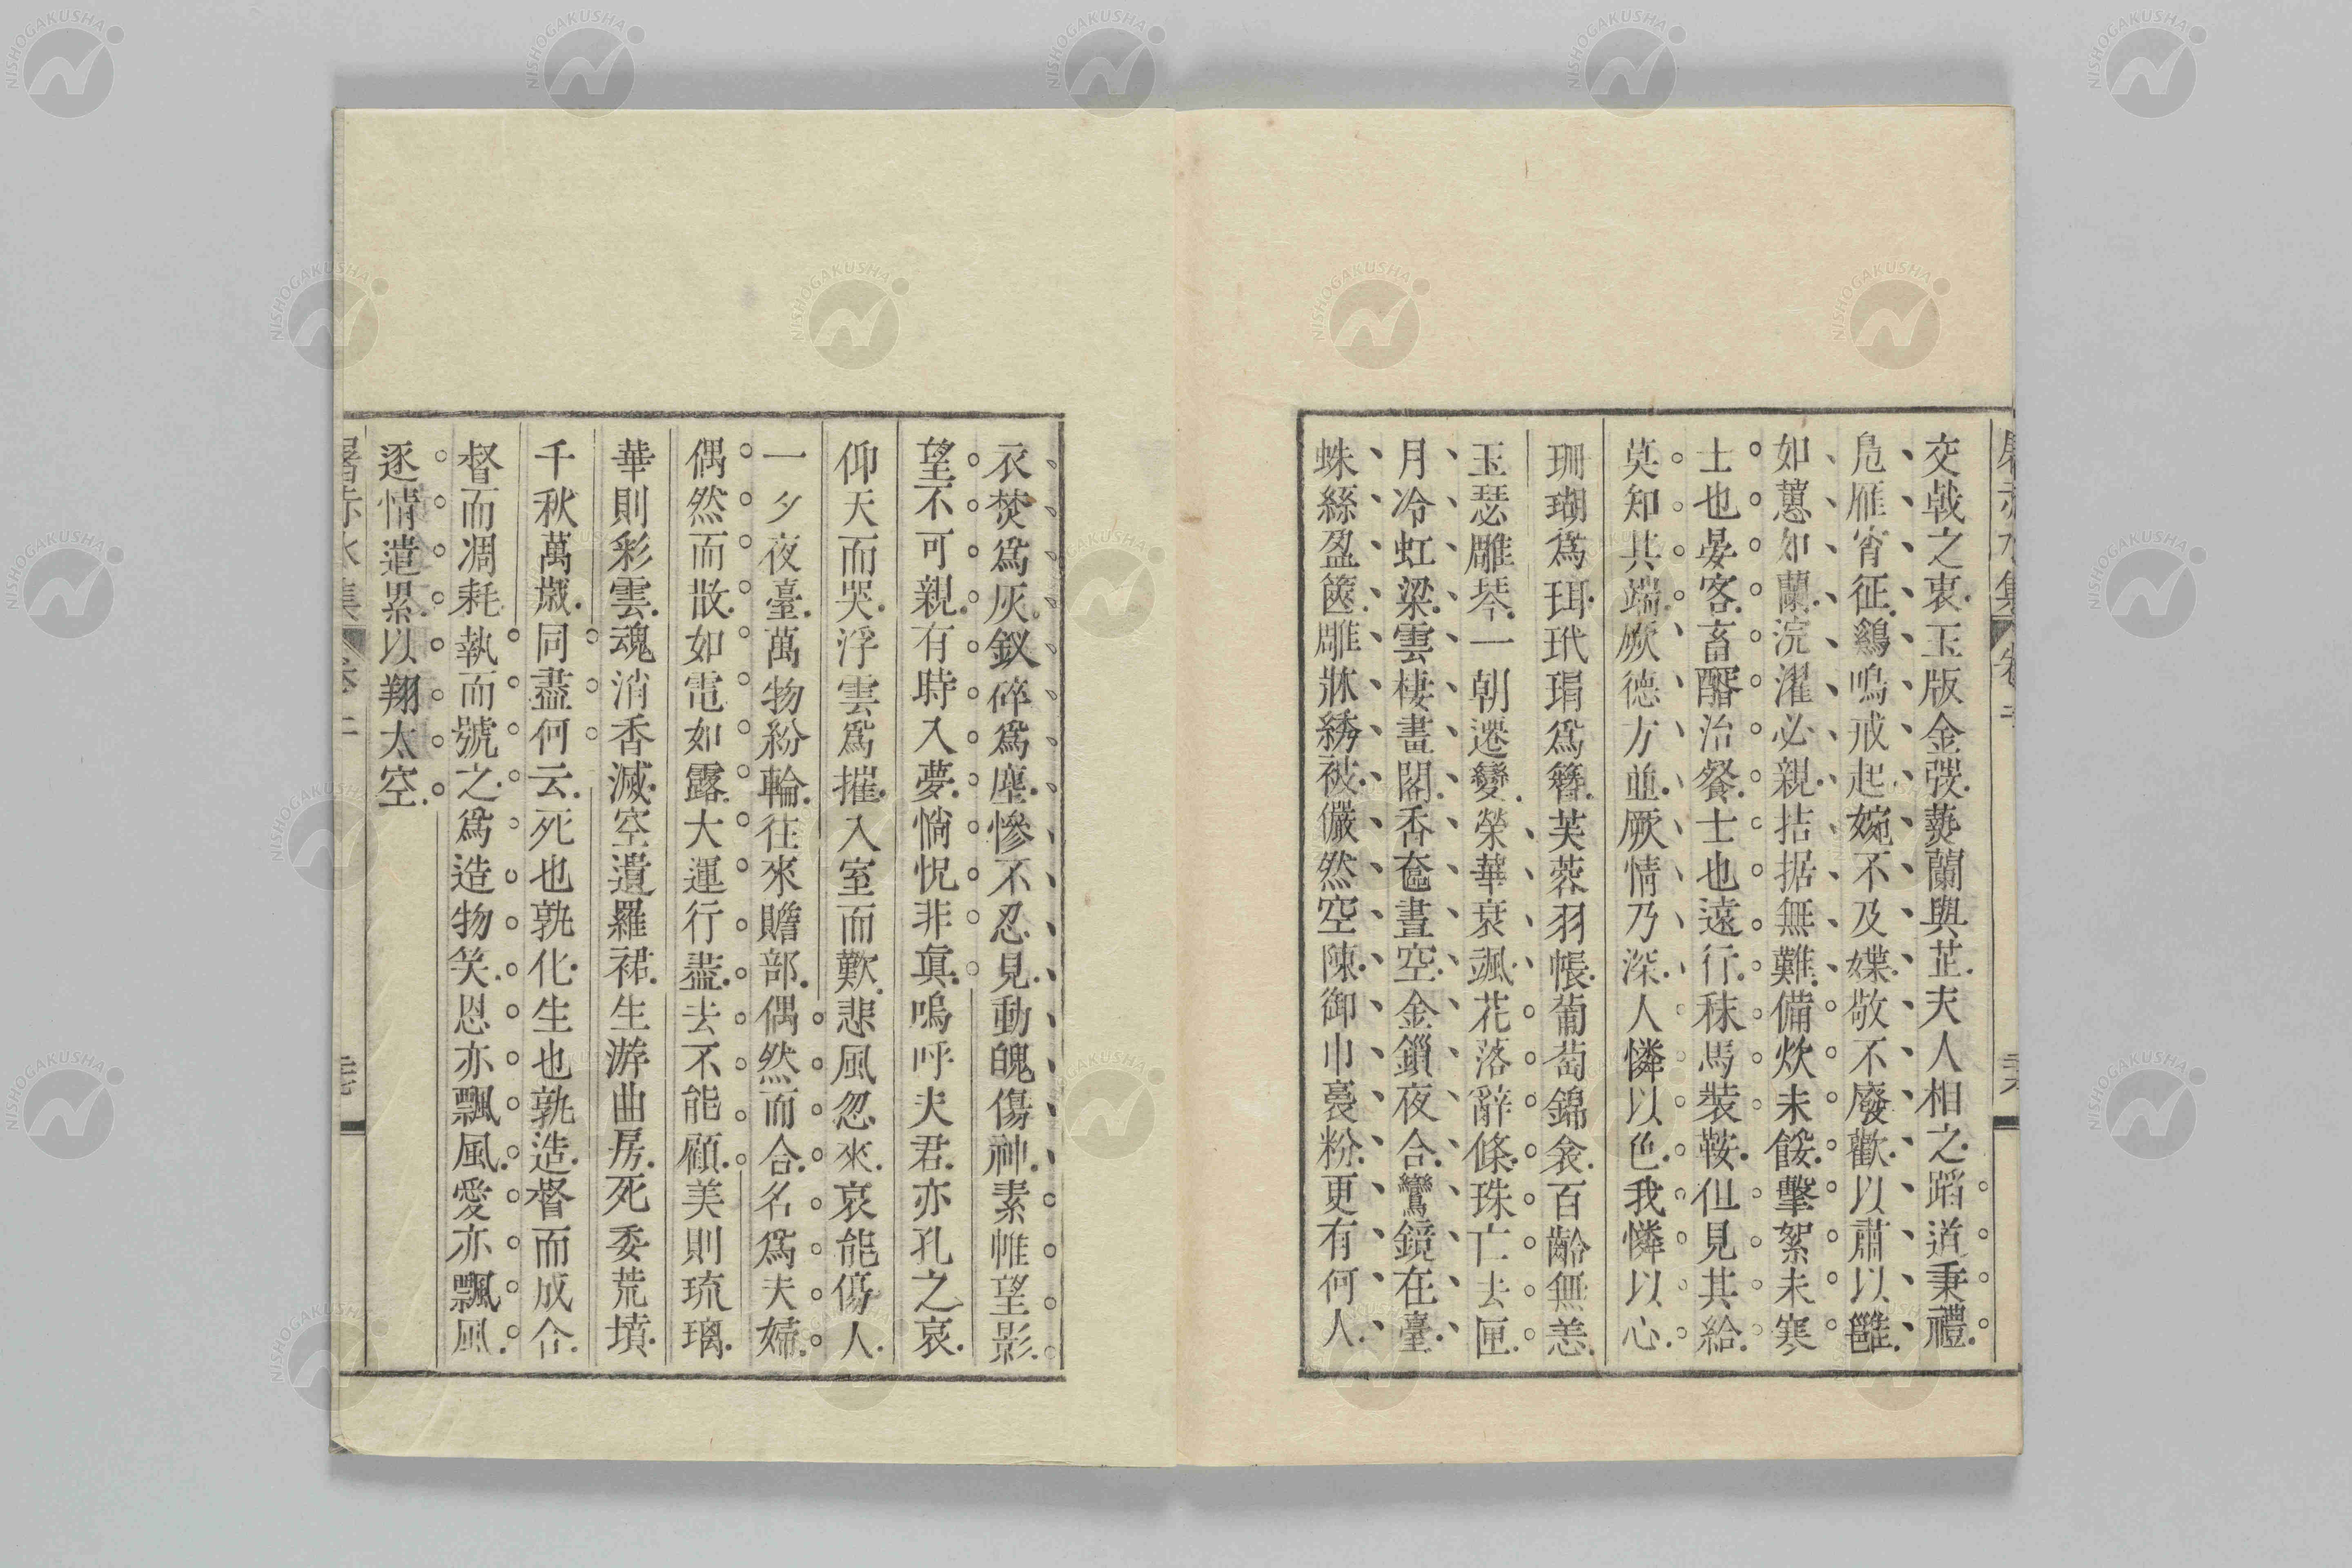 交戟之衷玉版金彂蓺蘭與芷夫人相之蹈道秉禮
鳧雁宵征鷄鳴戒起婉不及媟敬不廢歡以肅以雝
如蕙如蘭浣濯必親拮据無難備炊未餒擊絮未寒
士也晏客畜醑治餐士也遠行秣馬裝鞍但見其給
莫知其端厥德方並厥情乃深人憐以色我憐以心
珊瑚爲珥玳瑁爲簪芙蓉羽帳葡萄錦衾百齡無恙
玉瑟雕琴一朝遷變榮華衰颯花落辭條珠亡去匣
月冷虹梁雲棲畫閣香奩晝空金鎻夜合鸞鏡在臺
蛛絲盈篋雕牀綉被儼然空陳御巾裛粉更有何人
衣焚爲灰釵碎爲塵慘不忍見動魄傷神素帷望影
望不可親有時入夢惝怳非眞嗚呼夫君亦孔之哀
仰天而哭浮雲爲摧入室而歎悲風忽來哀能傷人
一夕夜臺萬物紛輪往來贍部偶然而合名爲夫婦
偶然而散如電如露大運行盡去不能顧美則琉璃
華則彩雲魂消香滅空遺羅裙生游曲房死委荒墳
千秋萬歲同盡何云死也孰化生也孰造督而成合
督而凋耗執而號之爲造物笑恩亦飄風愛亦飄風
逐情遣累以翔太空
屠赤水集